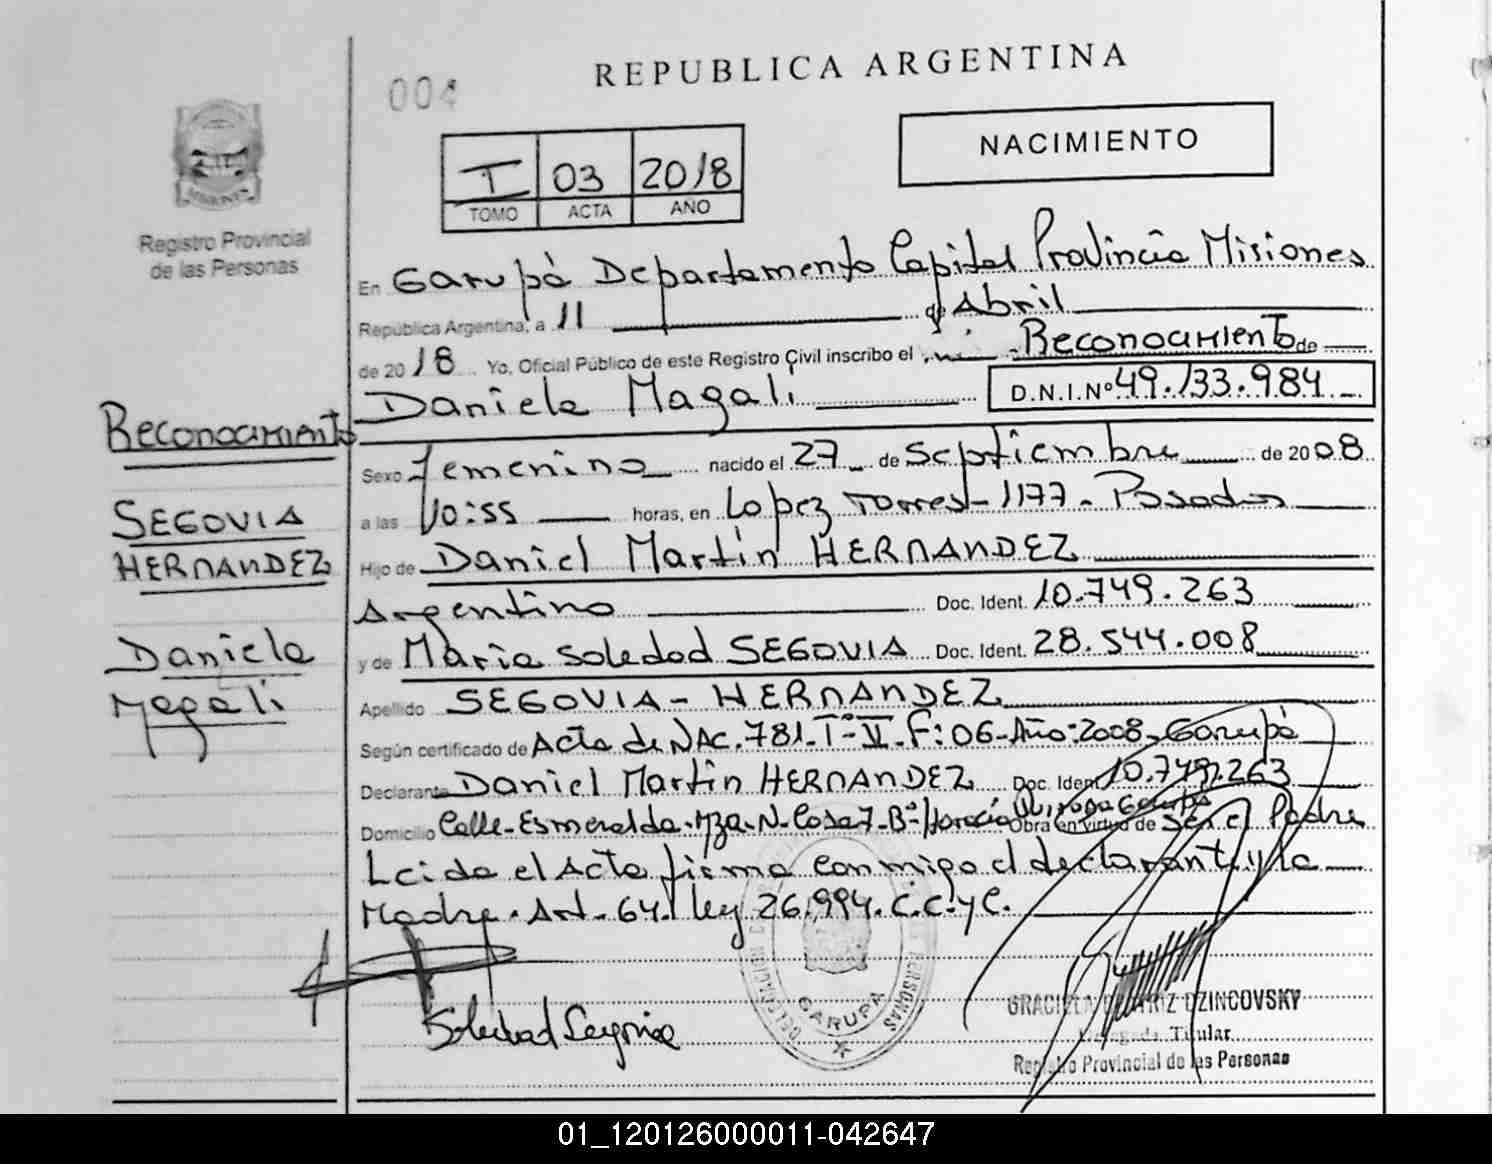 004
REPUBLICA ARGENTINA
NACIMIENTO
I 03 2018
TOMO ACTA AÑO
Registro Provincial
de las Personas
En Garupá Departamento Capital Provincia Misiones
República Argentina, a 11 de Abril
de 2018 Yo, Oficial Público de este Registro Civil inscribo el Reconocimiento de
Daniela Magali D.N.I.Nº 49.133.984
Reconocimiento
SEGOVIA
HERNANDEZ
Daniela
Magali
Sexo Femenino nacido el 27 de Septiembre de 2008
a las 10:55 horas, en Lopez Torres-1177-Posadas
Hijo de Daniel Martín HERNANDEZ
Argentino Doc. Ident. 10.749.263
y de María Soledad SEGOVIA Doc. Ident. 28.544.008
Apellido SEGOVIA-HERNANDEZ
Según certificado de Acta de NAC.781-Tº-V-F:06-Año:2008-Garupá
Declarante Daniel Martín HERNANDEZ Doc. Ident 10.749.263
Domicilio Calle-Esmeralda-Mza-N-Casa 7-Bº Horacio Quiroga Garupá Obra en virtud de Ser el Padre
Leida el Acta firma conmigo el declarante y la
Madre. Art. 64. ley 26.994. C.C.y C.
DELEGACION
PERSONAS
GARUPA
GRACIELA BEATRIZ DZINCOVSKY
Delegada Titular
Registro Provincial de las Personas
01_120126000011-042647